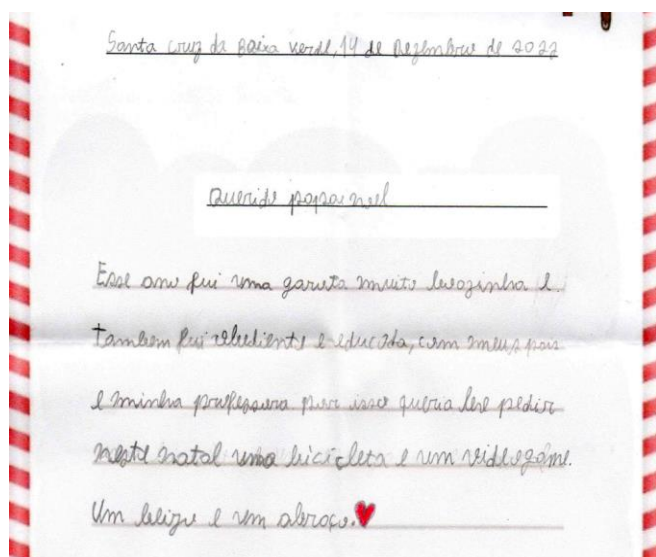 Santa cruz da Baixa verde, 14 de Dezembro de 2022
Queride papai noel
Esse ano fui uma garota muito boazinha e
tambem fui obediente e educada, com meus pais
e minha professora por isso queria lhe pedir
neste natal uma bicicleta e um videogame.
Um beijo e um abraço.